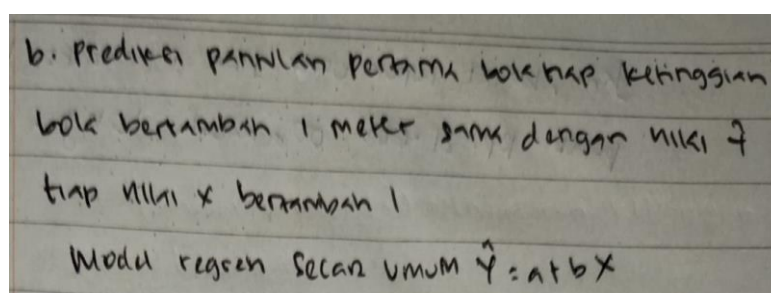 b. Prediksi pantulan pertama bola tiap ketinggian
bola bertambah 1 meter sama dengan nilai ŷ
tiap nilai x bertambah 1
Model regresi secara umum Ŷ = a + bX